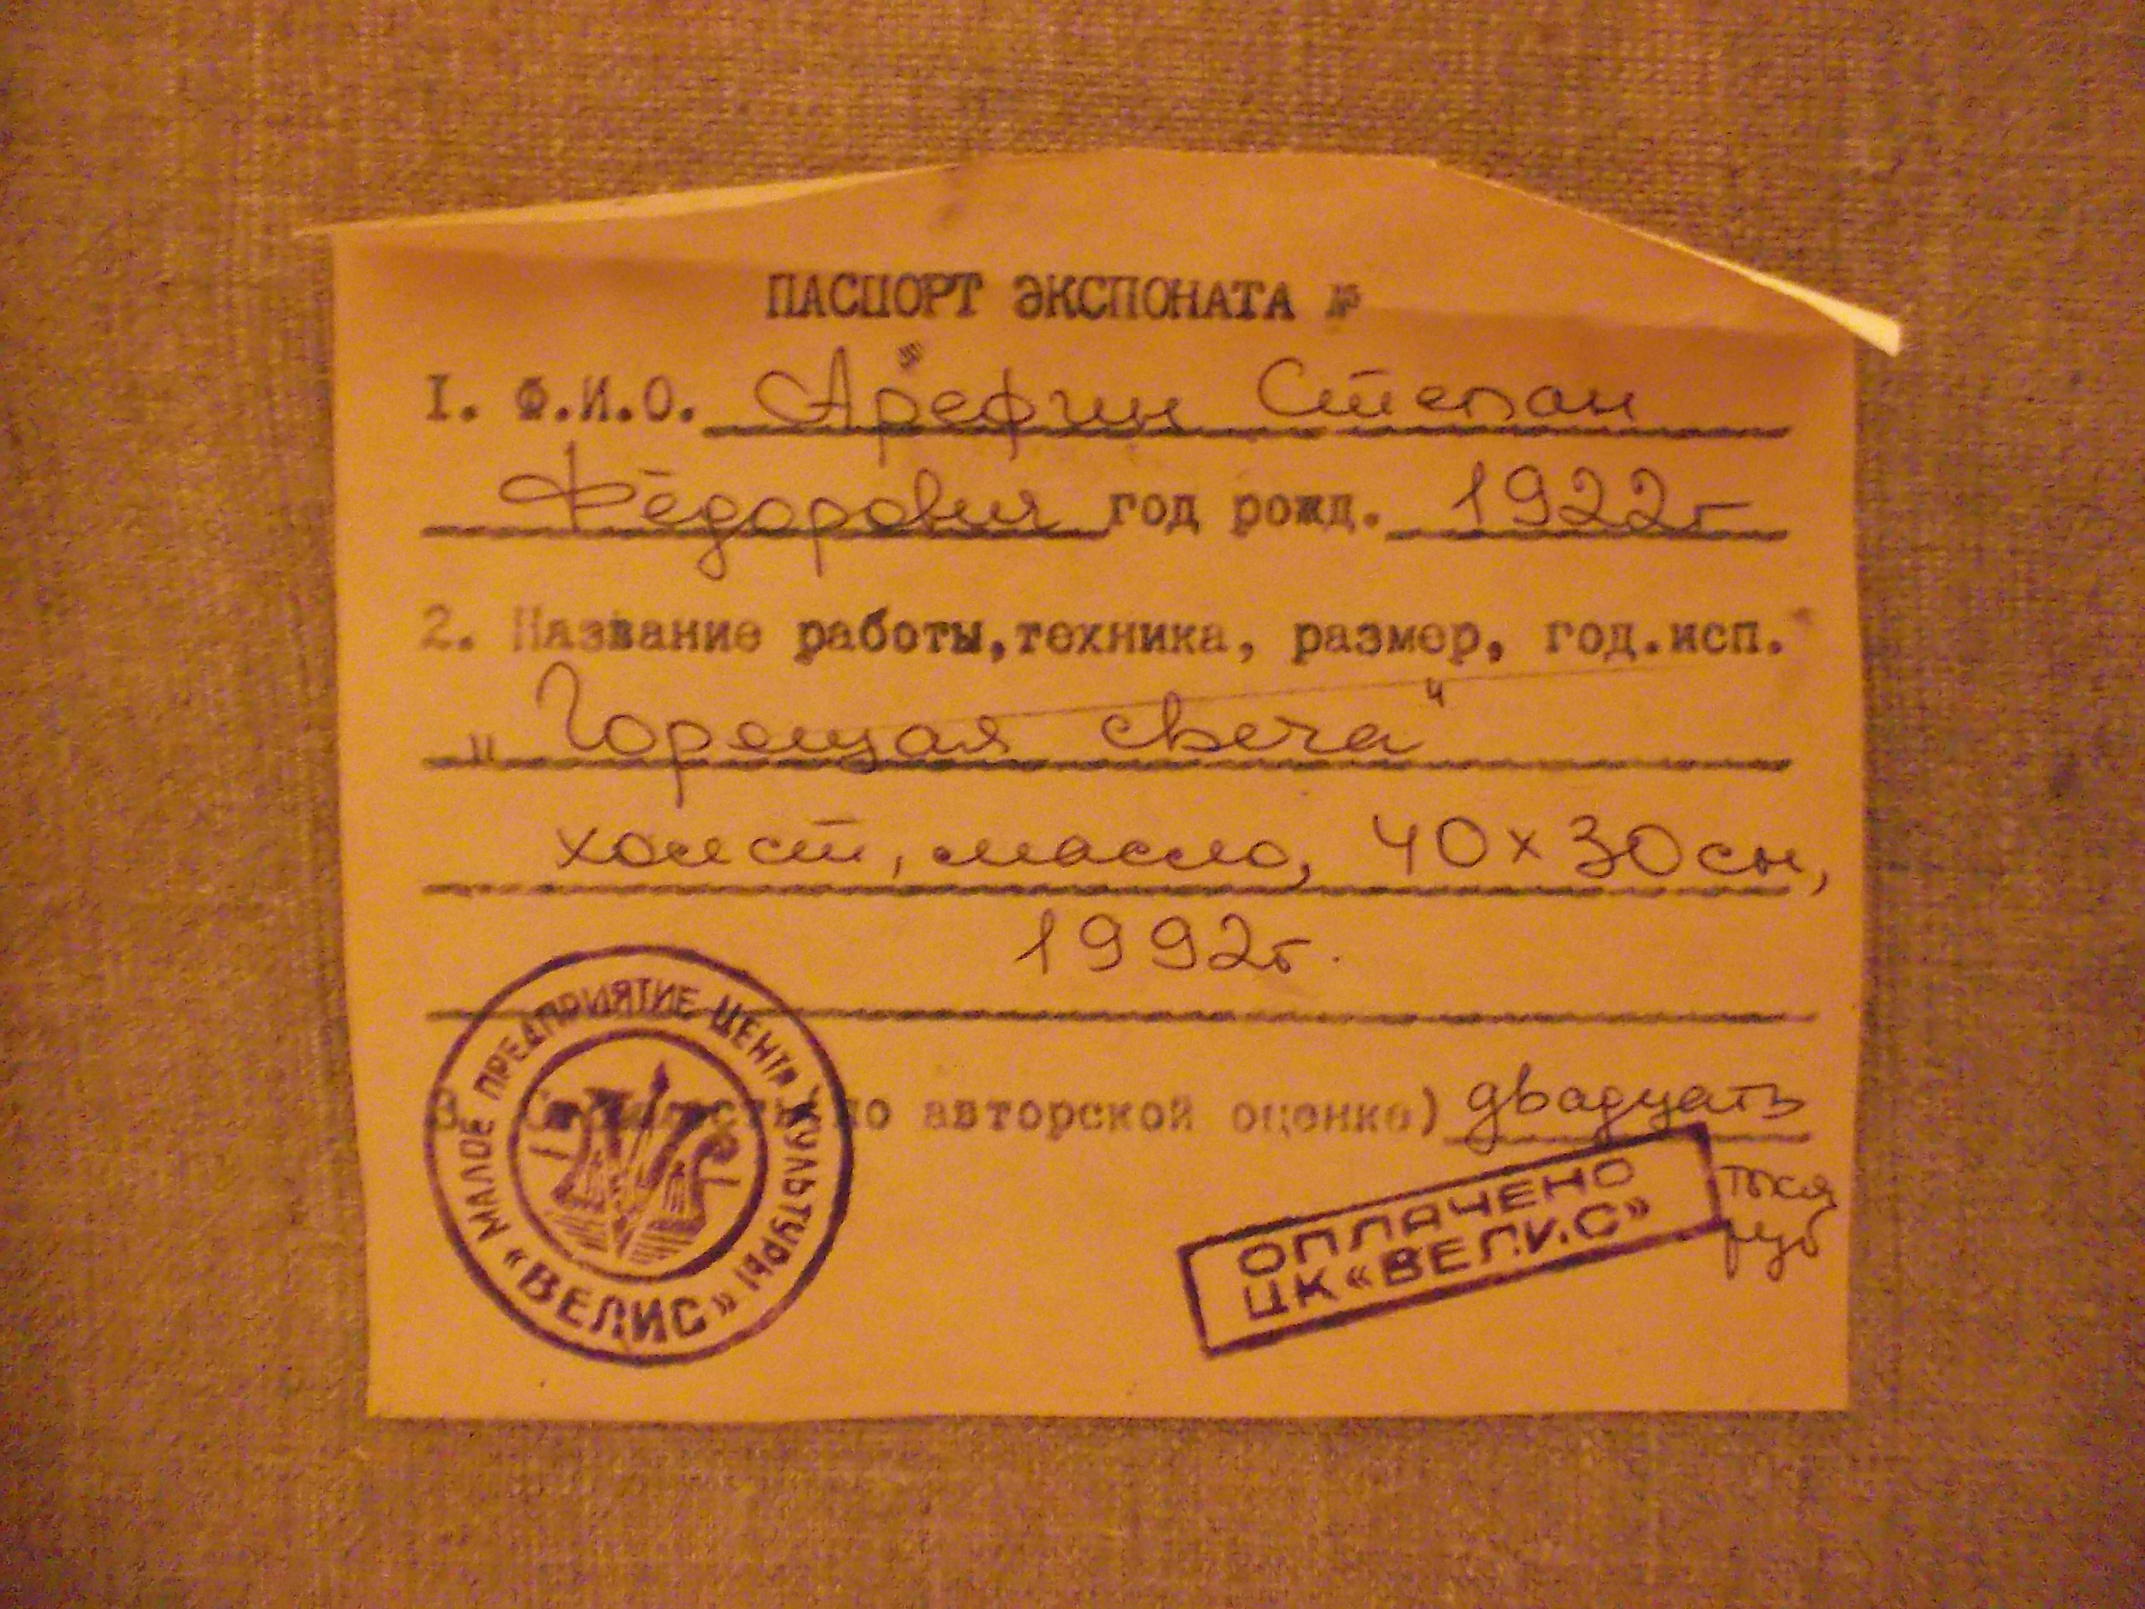 ПАСПОРТ ЭКСПОНАТА №
I. Ф.И.О. Арефин Степан
Фёдорович год рожд. 1922г
2. Название работы, техника, размер, год.исп.
„Горещая свеча"
холст, масло, 40х30см,
1992г.
3. Стоимость(по авторской оценке) двадцать
тыся
руб
МАЛОЕ ПРЕДПРИЯТИЕ ЦЕНТР КУЛЬТУРЫ
«ВЕЛИС»
ОПЛАЧЕНО
ЦК «ВЕЛИС»